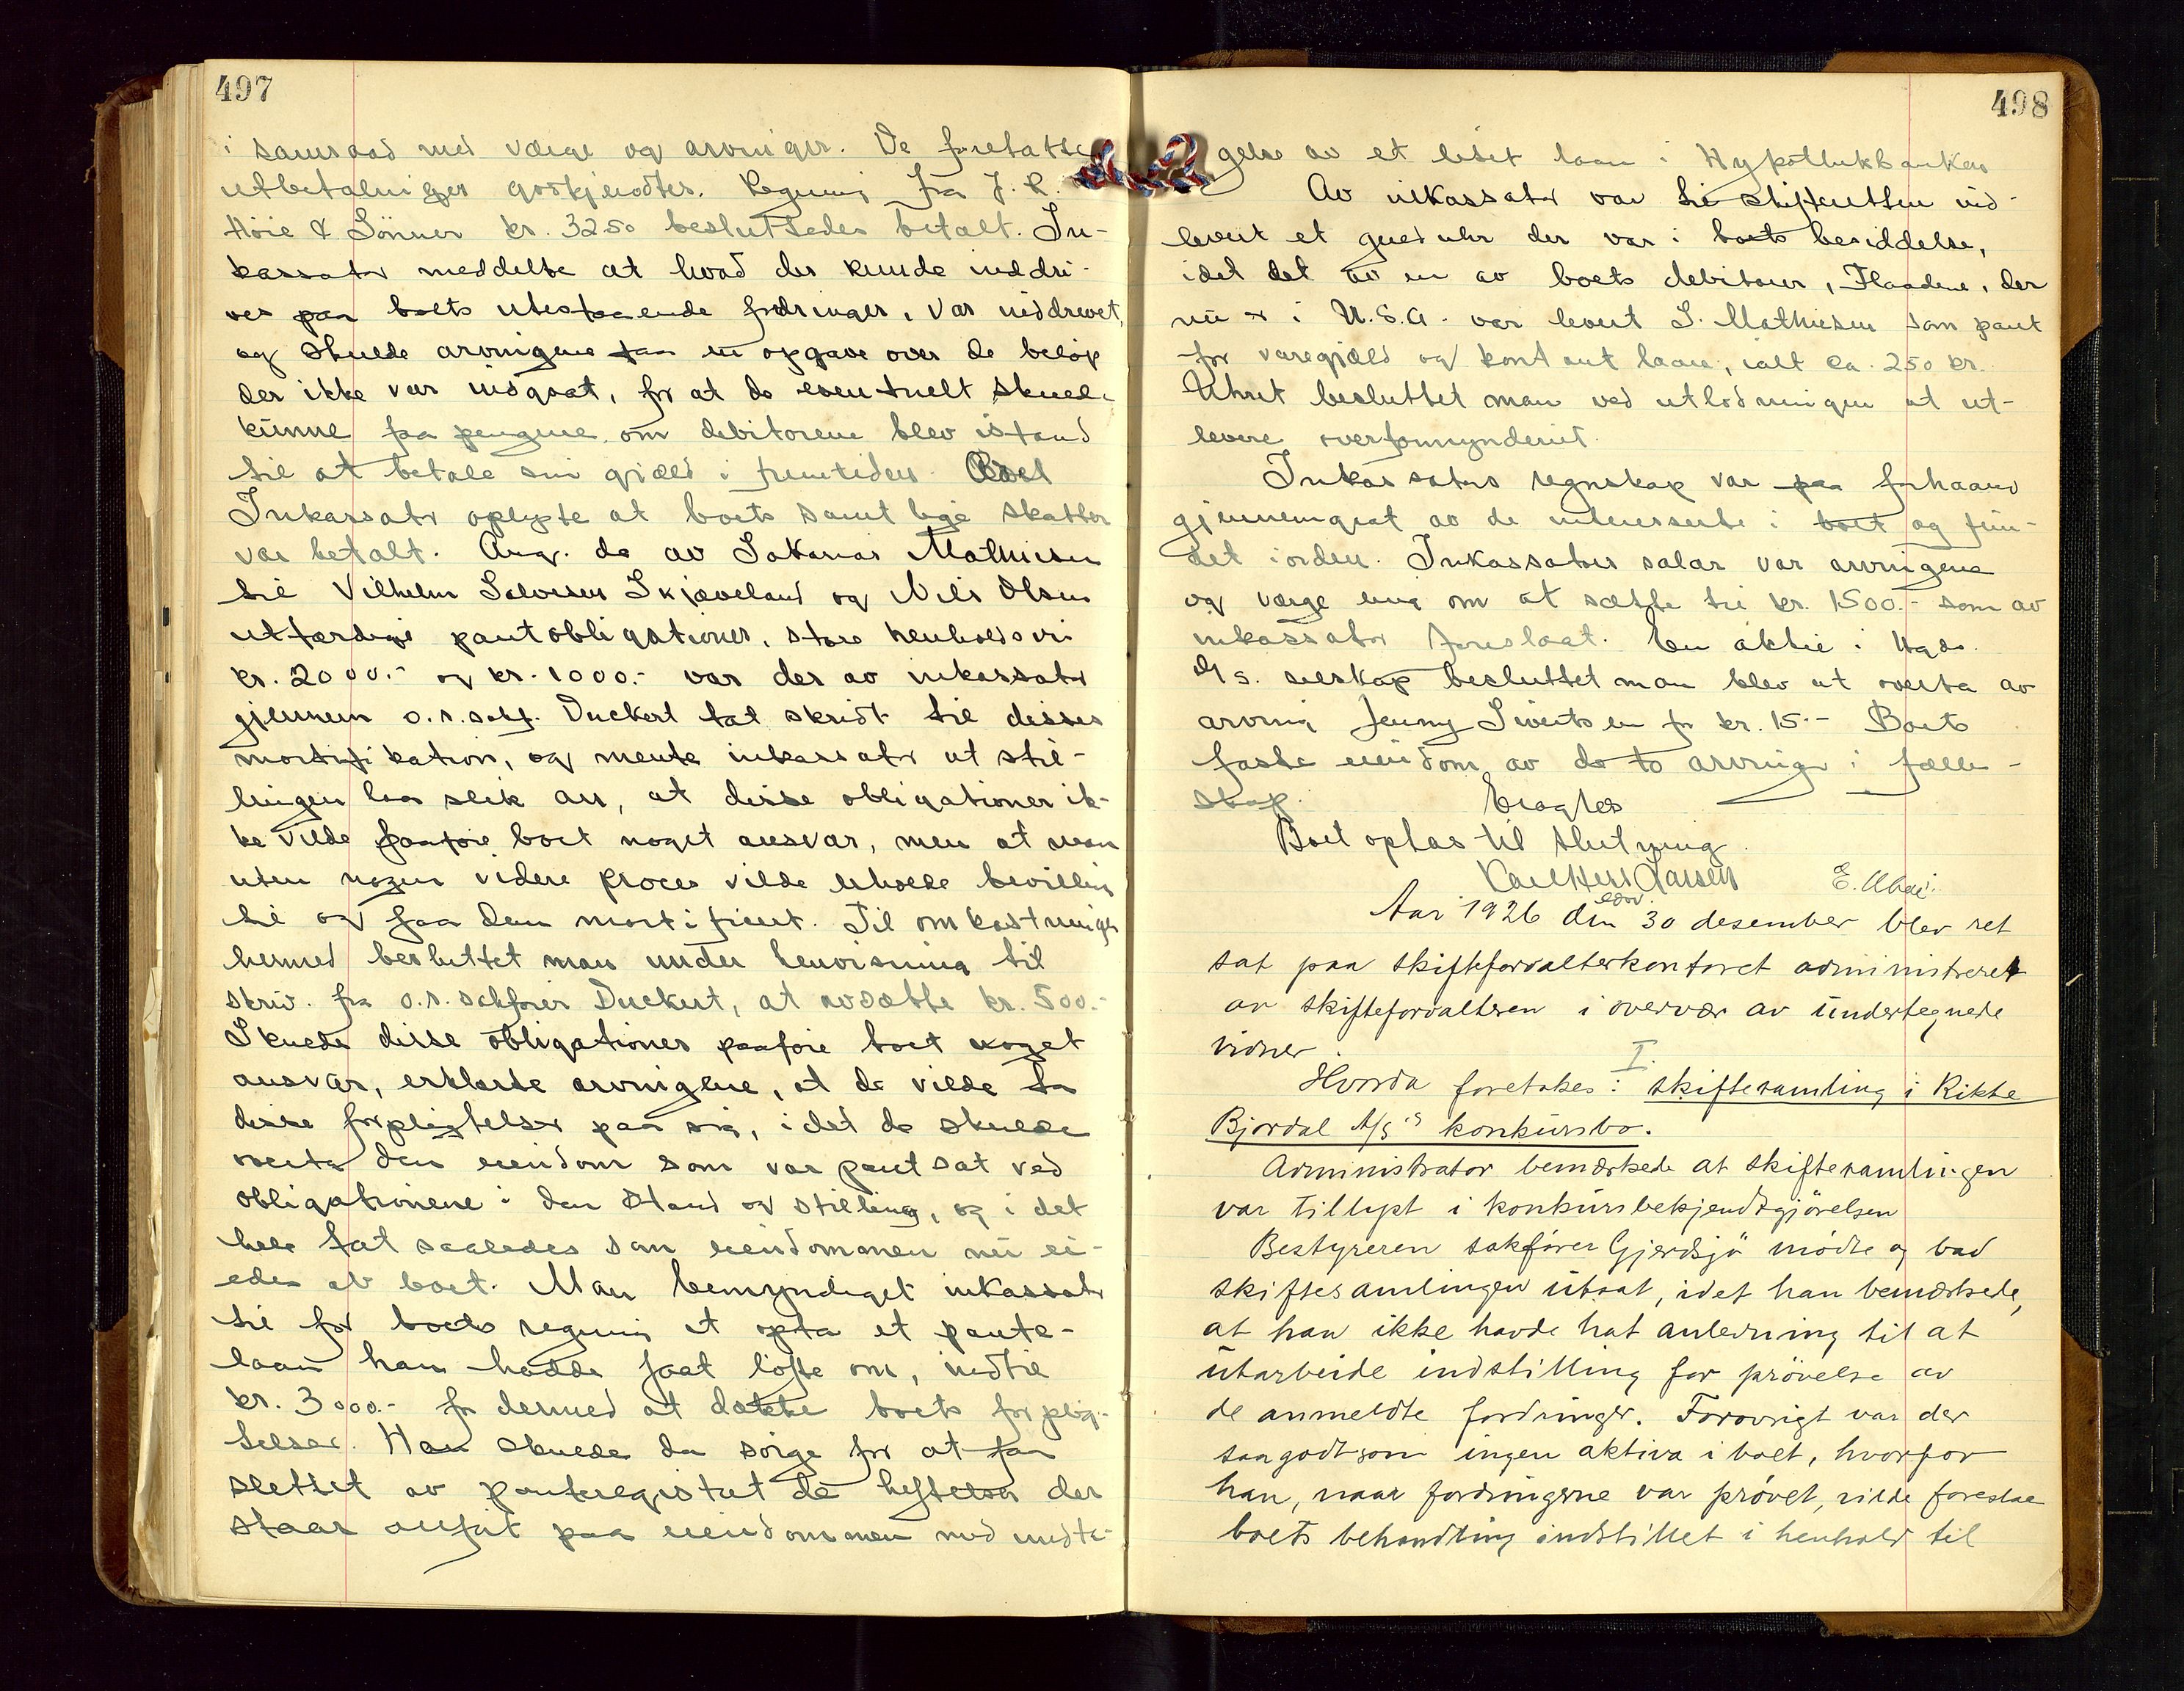 497
i samraad med værge og arvinger. De foretatte
utbetalninger godkjendtes. Regning fra J. R.
Höie & Sönner kr. 32.50 besluttedes betalt. In-
kassator meddelte at hvad der kunde inddri-
ves paa boets utestaaende fordringer, var inddrevet,
og skulde arvingene faa en opgave over de beløp
der ikke var indgaat, for at de eventuelt skulde
kunne faa pengene om debitorene blev istand
til at betale sin gjæld i fremtiden.
Inkassator oplyste at boets samtlige skatter
var betalt. Ang. de av Sakarias Mathiesen
til Vilhelm Salvesen Skjæveland og Nils Olsen
utfærdige pantobligationer, store henholdsvis
kr. 2000.- og kr. 1000.- var der av inkassator
gjennem o.r.sakf. Duckert tat skridt til disses
mortifikation, og mente inkassator at stil-
lingen laa slik an, at disse obligationer ik-
ke vilde paaføie boet noget ansvar, men at man
uten nogen videre proces vilde erholde bevilling
til og faa dem mortificert. Til omkostninger
hermed besluttet man under henvisning til
skriv. fra o.r.sakfører Duckert, at avsætte kr. 500.-
Skulde disse obligationer paaføie boet noget
ansvar, erklærte arvingene, at de vilde ta
disse forpligtelser paa sig, idet de skulde
overta den eiendom som var pantsat ved
obligationene i den stand og stilling, og i det
hele tat saaledes som eiendommen nu ei-
edes av boet. Man bemyndiget inkassator
til for boets regning at opta et pante-
laan han hadde faat løfte om, indtil
kr. 3000.- for dermed at dække boets forplig-
telser. Han skulde da sørge for at faa
slettet av panteregistret de heftelser der
staar anført paa eiendommen med undta-
498
gelse av et litet laan i Hypothekbanken
Av inkassator var til skifteretten ind-
levert et guldur der var i boets besiddelse,
idet det av en av boets debitorer, Flaadene, der
nu er i U.S.A. var levert S. Mathiesen som pant
for varegjæld og kontant laan, ialt ca. 250 kr.
Uhret besluttet man ved utlodningen at ut-
levere overformynderiet.
Inkassators regnskap var paa forhaand
gjennemgaat av de interesserte i boet og fun-
det iorden. Inkassators salær var arvingene
og værge enig om at sætte til kr. 1500.- som av
inkassator foreslaat. En aktie i
selskap besluttet man blev at overta av
arving Jenny Sivertsen for kr. 15.- Boets
faste eiendom av de to arvinger i fælle-
skap.
Eragtes
Boet optas til slutning.
Karl Herr Larsen
edsv.
E. Abei.
Aar 1926 den 30 desember blev ret
sat paa skifteforvalterkontoret administreret
av skifteforvalteren i overvær av undertegnede
vidner
I.
Hvorda foretakes: skiftesamling i Rikke
Bjordal A/S's konkursbo.
Administrator bemærkede at skiftesamlingen
var tillyst i konkursbekjendtgjörelsen
Bestyreren sakfører Gjerdsjö mödte og bad
skiftesamlingen utsat, idet han bemærkede,
at han ikke havde hat anledning til at
utarbeide indstilling for prövelse av
de anmeldte fordringer. Forøvrigt var der
saagodtsom ingen aktiva i boet, hvorfor
han, naar fordringerne var prøvet, vilde foreslaa
boets behandling indstillet i henhold til